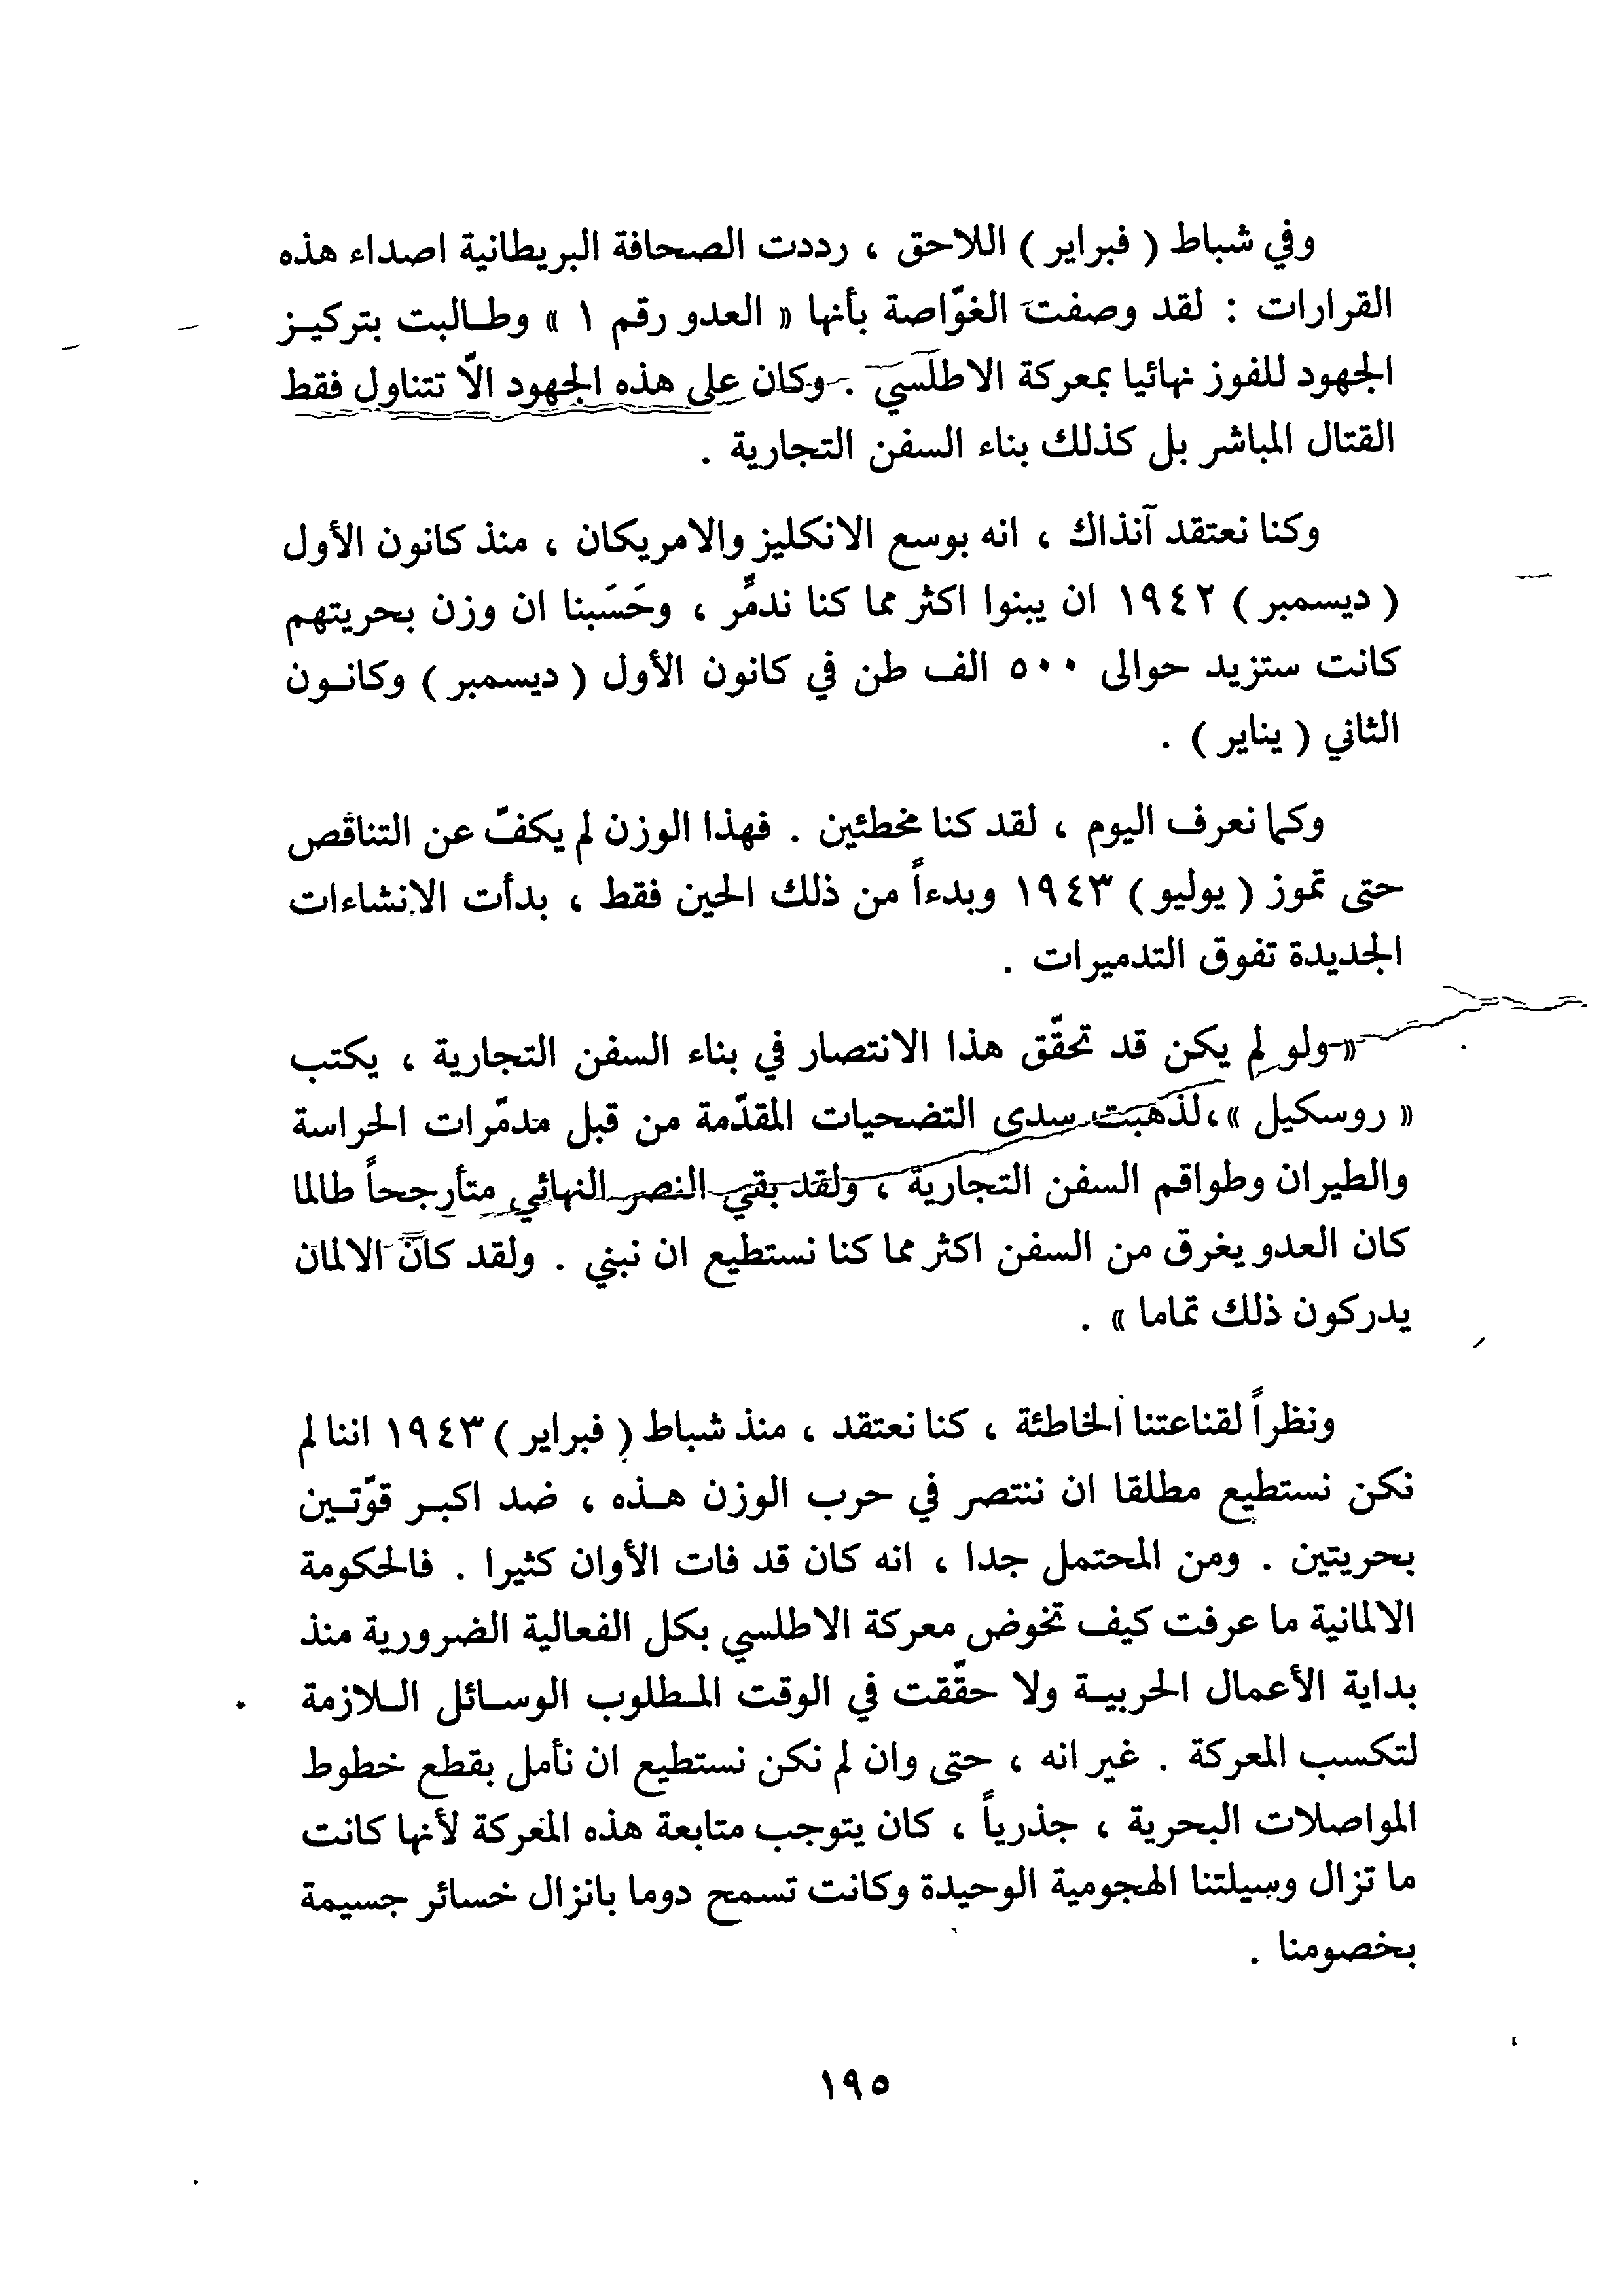 وفي شباط ( فبراير ) اللاحق ، رددت الصحافة البريطانية اصداء هذه
القرارات : لقد وصفت الغوّاصة بأنها « العدو رقم ١ » وطالبت بتركيز
الجهود للفوز نهائيا بمعركة الاطلسي . وكان على هذه الجهود الاّ تتناول فقط
القتال المباشر بل كذلك بناء السفن التجارية .
وكنا نعتقد آنذاك ، انه بوسع الانكليز والامريكان ، منذ كانون الأول
( ديسمبر ) ١٩٤٢ ان يبنوا اكثر مما كنا ندمّر ، وحَسَبنا ان وزن بحريتهم
كانت ستزيد حوالى ٥٠٠ الف طن في كانون الأول ( ديسمبر ) وكانون
الثاني ( يناير ) .
وكما نعرف اليوم ، لقد كنا مخطئين . فهذا الوزن لم يكفّ عن التناقص
حتى تموز ( يوليو ) ١٩٤٣ وبدءاً من ذلك الحين فقط ، بدأت الانشاءات
الجديدة تفوق التدميرات .
« ولو لم يكن قد تحقّق هذا الانتصار في بناء السفن التجارية ، يكتب
« روسكيل » ، لذهبت سدى التضحيات المقدّمة من قبل مدمّرات الحراسة
والطيران وطواقم السفن التجارية ، ولقد بقي النصر النهائي متأرجحاً طالما
كان العدو يغرق من السفن اكثر مما كنا نستطيع ان نبني . ولقد كان الالمان
يدركون ذلك تماما » .
ونظراً لقناعتنا الخاطئة ، كنا نعتقد ، منذ شباط ( فبراير ) ١٩٤٣ اننا لم
نكن نستطيع مطلقا ان ننتصر في حرب الوزن هذه ، ضد اكبر قوّتين
بحريتين . ومن المحتمل جدا ، انه كان قد فات الأوان كثيرا . فالحكومة
الالمانية ما عرفت كيف تخوض معركة الاطلسي بكل الفعالية الضرورية منذ
بداية الأعمال الحربية ولا حقّقت في الوقت المطلوب الوسائل اللازمة
لتكسب المعركة . غير انه ، حتى وان لم نكن نستطيع ان نأمل بقطع خطوط
المواصلات البحرية ، جذرياً ، كان يتوجب متابعة هذه المعركة لأنها كانت
ما تزال وسيلتنا الهجومية الوحيدة وكانت تسمح دوما بانزال خسائر جسيمة
بخصومنا .
١٩٥